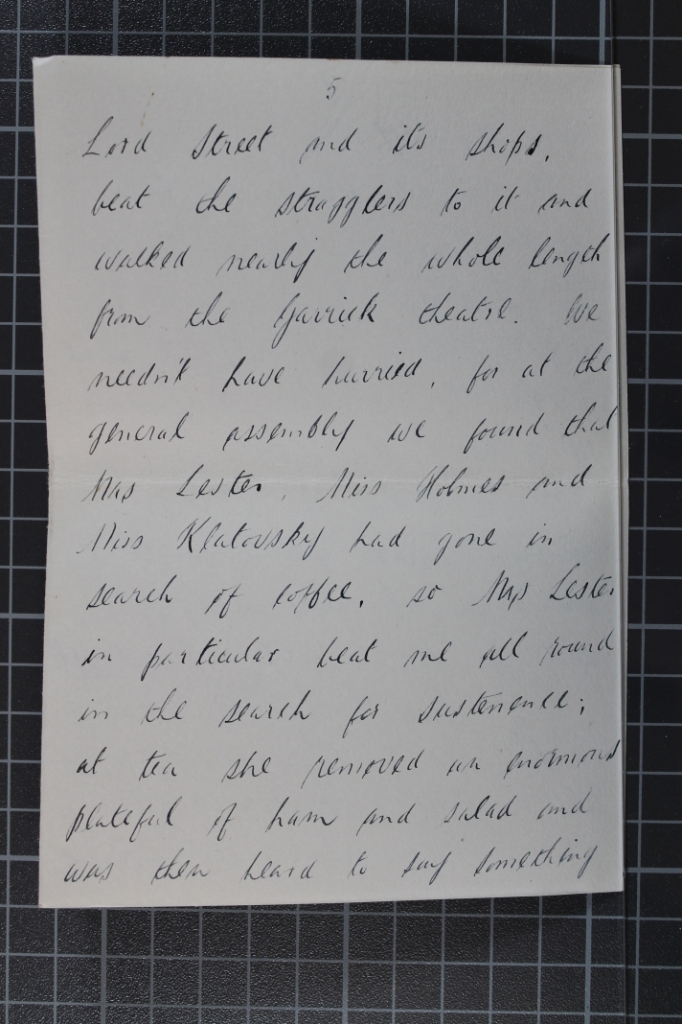 5
Lord Street and its shops,
beat the stragglers to it and
walked nearly the whole length
from the Garrick theatre. We
needn't have hurried, for at the
general assembly we found that
Mrs Lester, Miss Holmes and
Miss Klatovsky had gone in
search of coffee, so Mrs Lester
in particular beat me all round
in the search for sustenence;
at tea she removed an enormous
plateful of ham and salad and
was then heard to say something